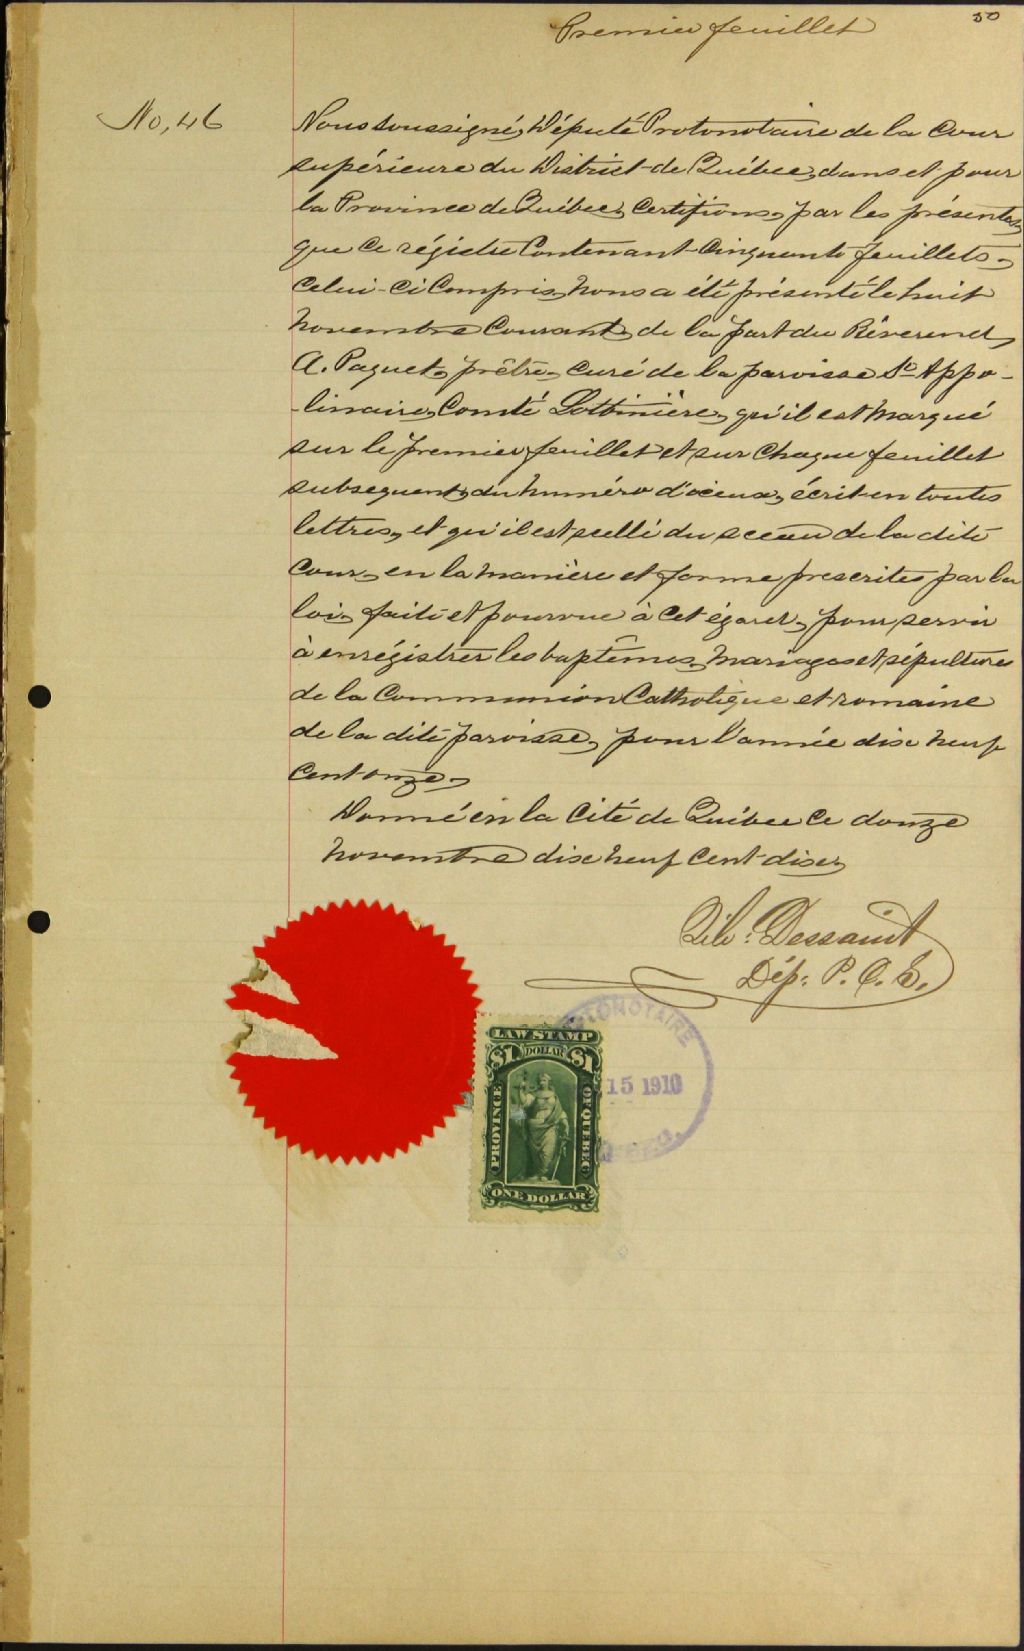 50
Premier feuillet
No, 46
Nous soussigné, Député Protonotaire de la Cour
supérieure du District de Québec, dans et pour
la Province de Québec, Certifions, par les présentes,
que ce régistre Contenant Cinquante feuillets,
Celui-Ci Compris, Nous a été présenté le huit
Novembre Courant, de la part du Réverend,
A. Paquet, prêtre, Curé de la paroisse St Appo-
-linaire, Comté Lotbinière, qu'il est Marqué
sur le premier feuillet et sur Chaque feuillet
subsequent, du Numéro d'iceux, écrit en toutes
lettres, et qu'il est scellé du sceau de la dite
Cour, en la Manière et forme prescrites par la
loi, faite et pourvue à Cet égard, pour servir
à enrégistrer les baptêmes, Mariages et sépultures
de la Communion Catholique et romaine
de la dite paroisse, pour l'année dix Neuf
Cent onze,
Donné en la Cité de Québec Ce douze
Novembre dix Neuf Cent dix,
Dessaint
Dép: P. C. S.
LAW STAMP
$1 DOLLAR $1
PROVINCE OF QUEBEC
ONE DOLLAR
15 1910